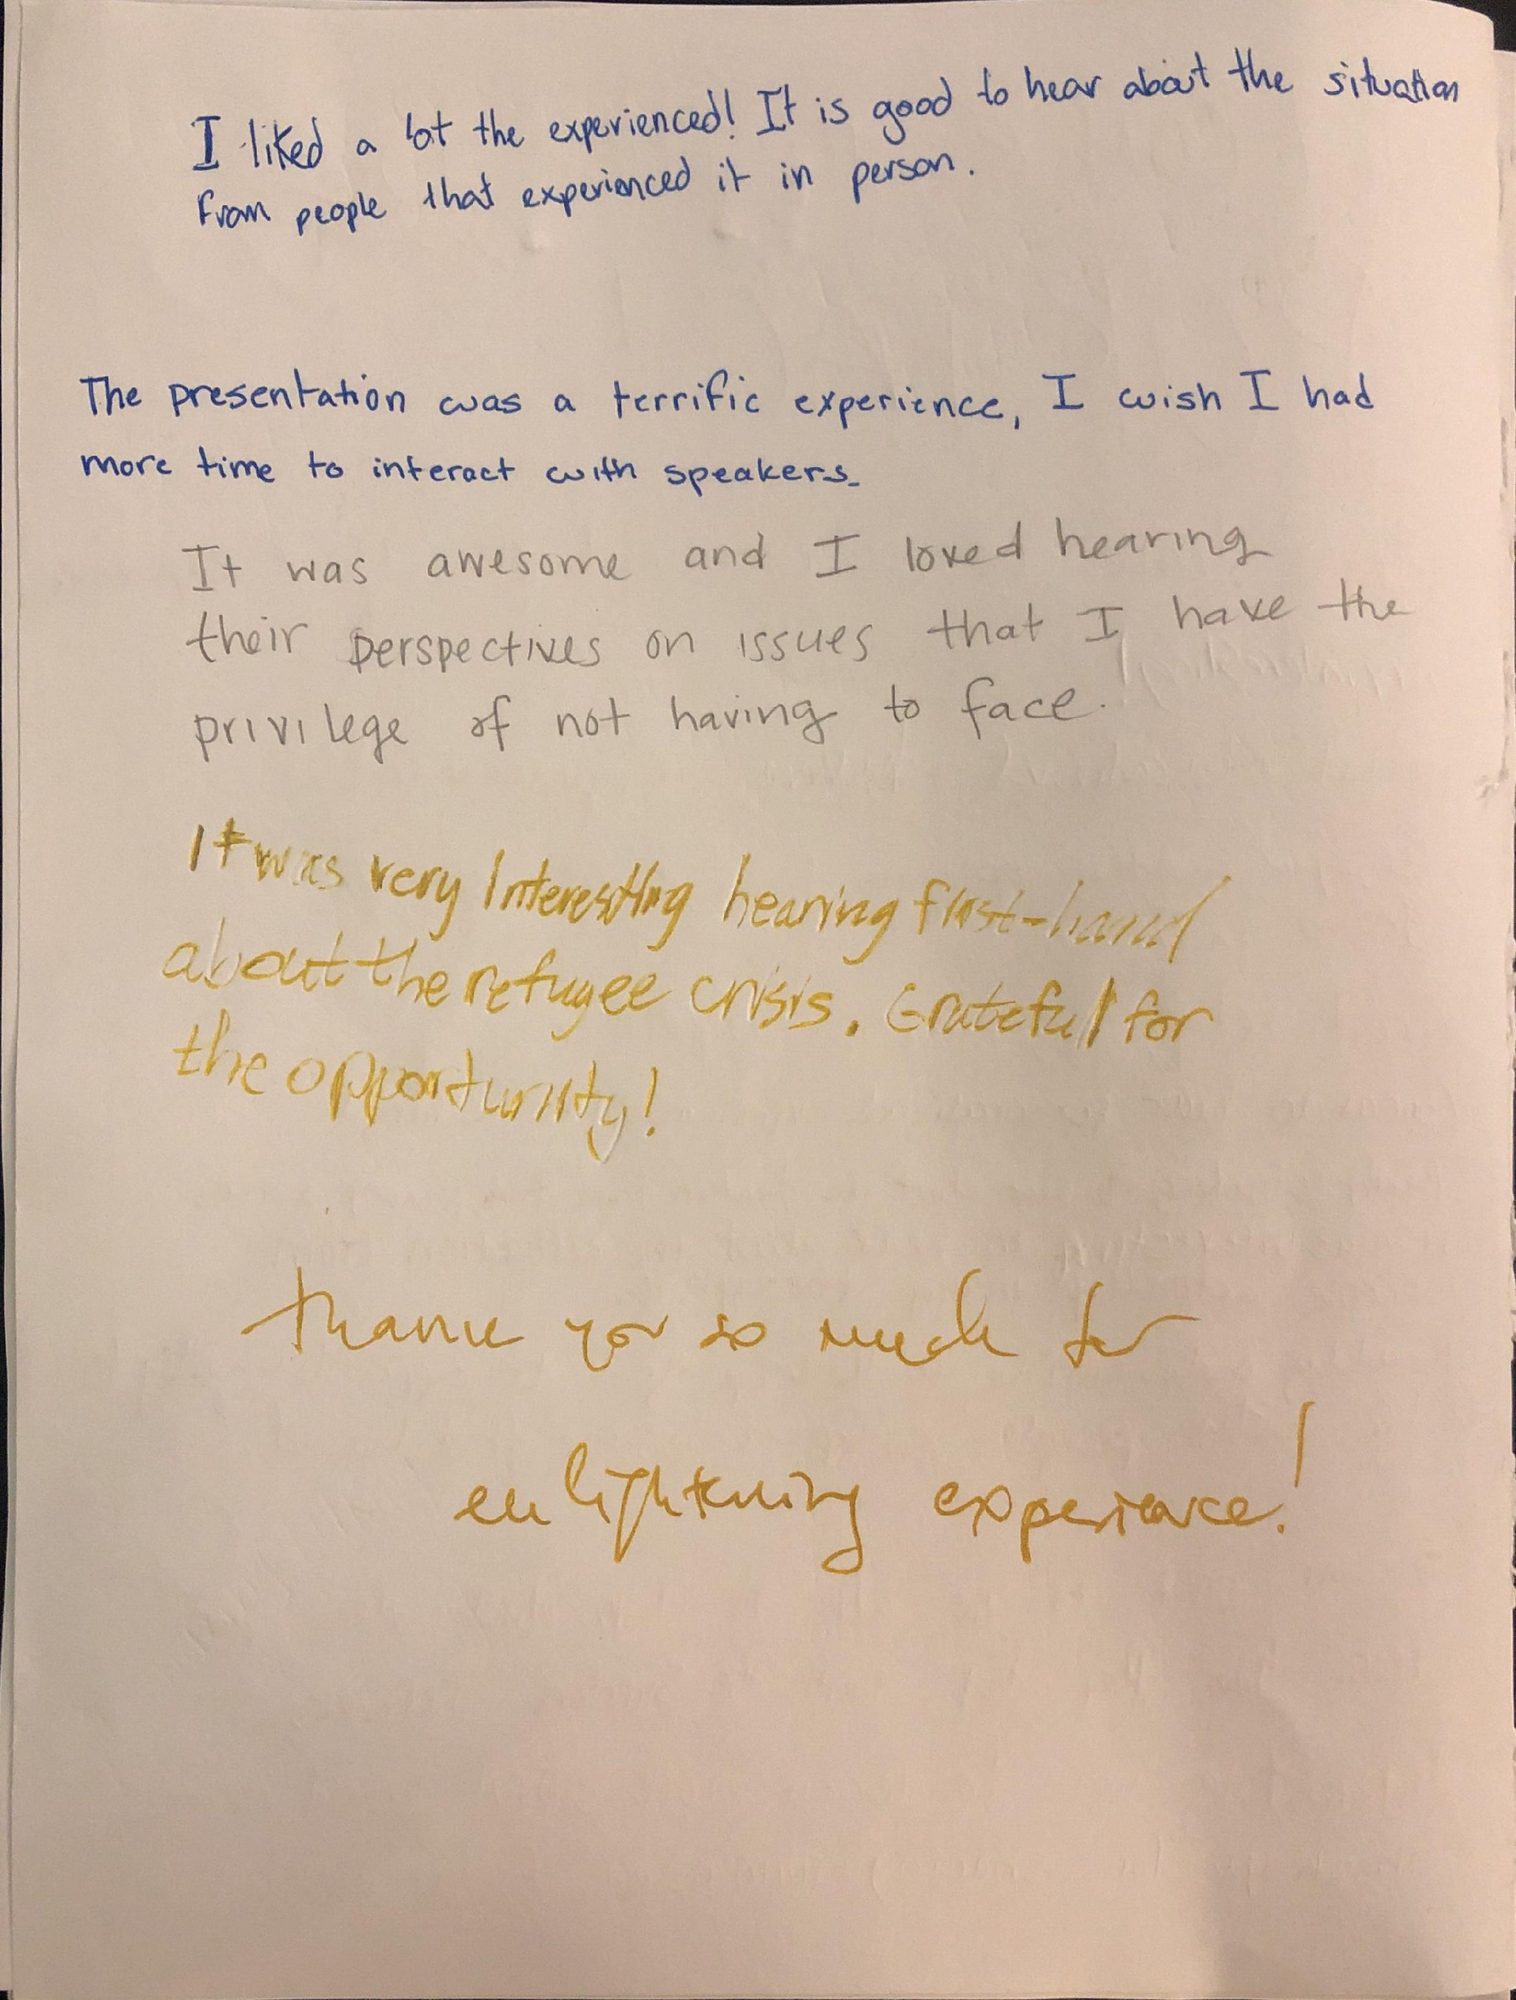 I liked a lot the experienced! It is good to hear about the situation
from people that experienced it in person.
The presentation was a terrific experience, I wish I had
more time to interact with speakers.
It was awesome and I loved hearing
their perspectives on issues that I have the
privilege of not having to face.
It was very interesting hearing first-hand
about the refugee crisis. Grateful for
the opportunity!
thank you so much for
enlightening experience!